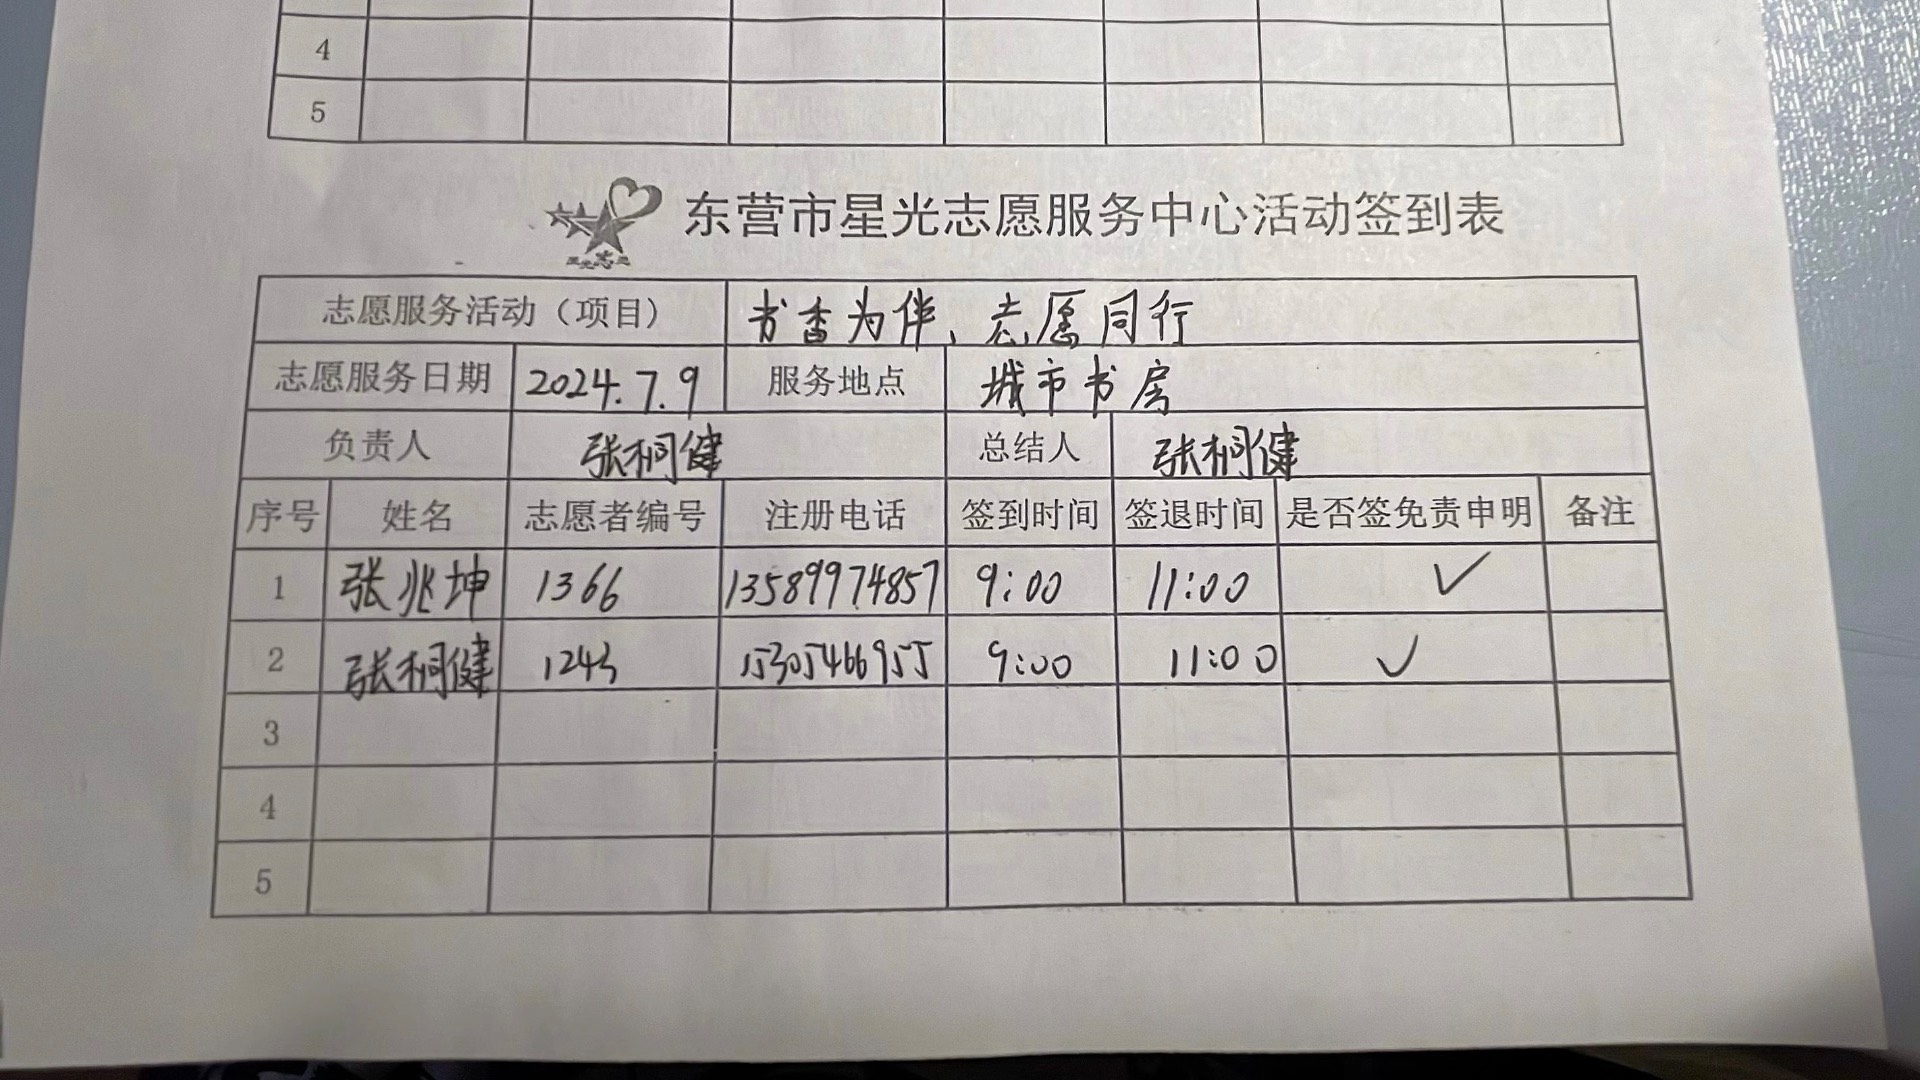 4
5
星光志愿
东营市星光志愿服务中心活动签到表
志愿服务活动（项目） 书香为伴、志愿同行
志愿服务日期 2024.7.9 服务地点 城市书房
负责人 张桐健 总结人 张桐健
序号 姓名 志愿者编号 注册电话 签到时间 签退时间 是否签免责申明 备注
1 张兆坤 1366 13589974857 9:00 11:00 ✓
2 张桐健 1243 15305466955 9:00 11:00 ✓
3
4
5